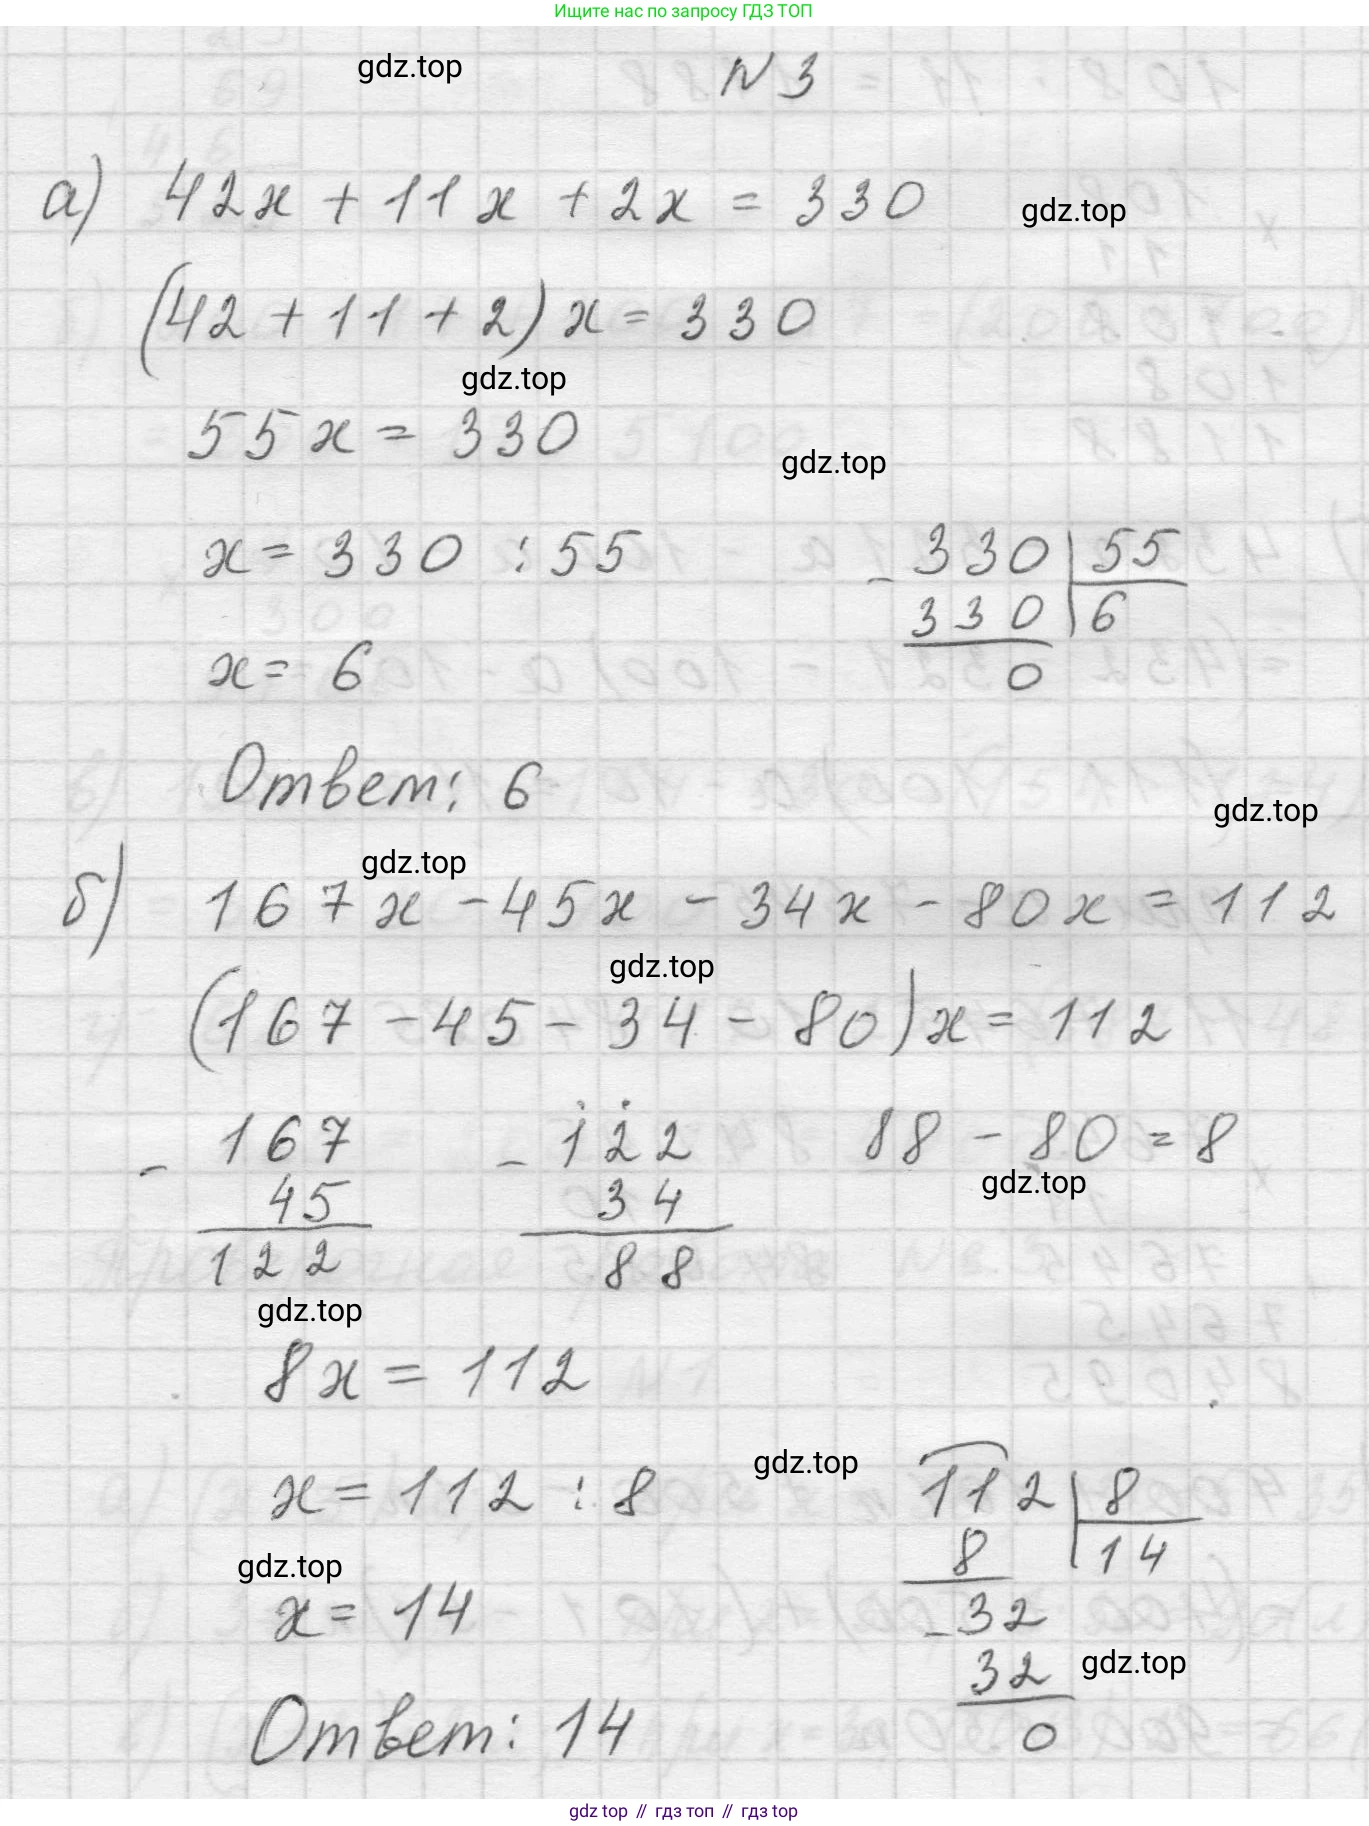 Ищите нас по запросу ГДЗ ТОП
gdz.top
N 3
а) 42x + 11x + 2x = 330
gdz.top
(42 + 11 + 2) x = 330
gdz.top
55x = 330
gdz.top
x = 330 : 55
- 330 | 55
330 | 6
0
x = 6
Ответ: 6
gdz.top
gdz.top
б) 167x - 45x - 34x - 80x = 112
gdz.top
(167 - 45 - 34 - 80) x = 112
- 167
45
122
- 122
34
88
88 - 80 = 8
gdz.top
gdz.top
8x = 112
gdz.top
x = 112 : 8
112 | 8
8 | 14
- 32
32
0
gdz.top
x = 14
gdz.top
Ответ: 14
gdz top // гдз топ // гдз top